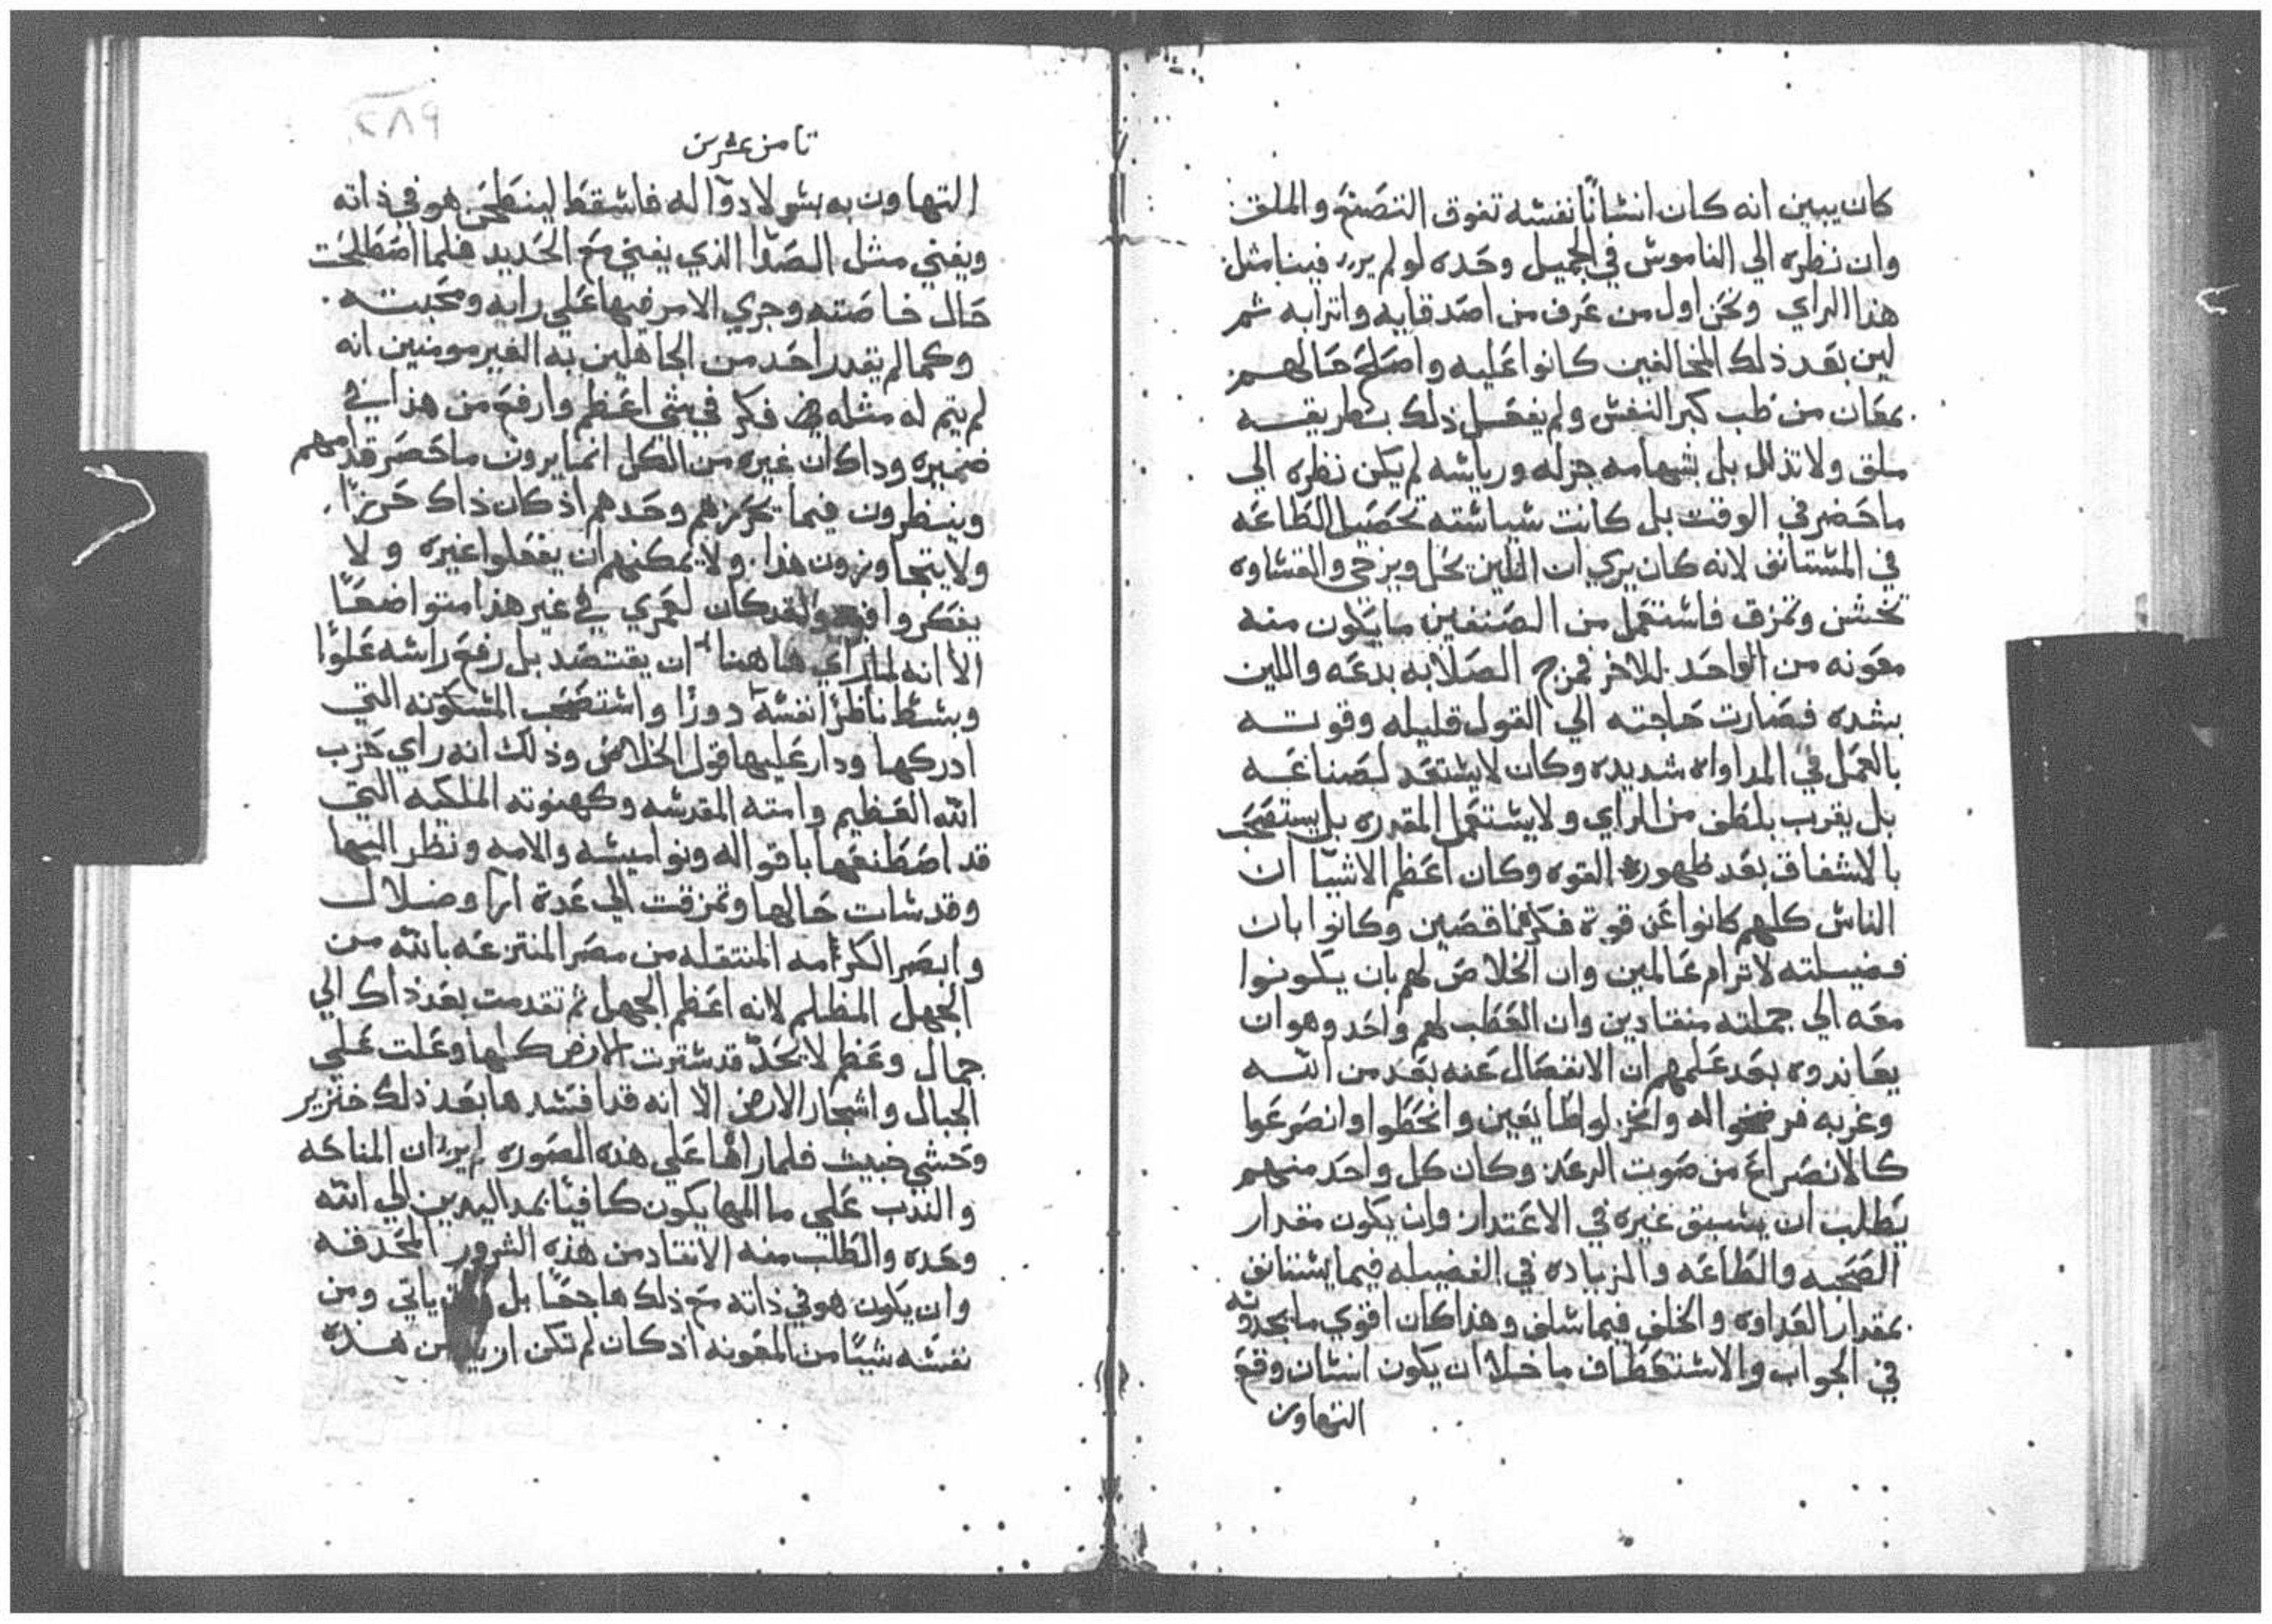 كان يبين انه كان انسانًا نفسه تفوق التصنع والملق
وان نظره الي الناموس في الجميل وحده لو لم يرد فينا مثل
هذا الراي ونحن اول من عرف من اصدقايه واترابه ثم
لين بعد ذلك المخالفين كانوا عليه واصلح حالهم
بمعان من طب كبر النفس ولم يفعل ذلك بطريقه
ملق ولا تذلل بل بشهامه جزله ورياسه لم يكن نظره الي
ما حضر في الوقت بل كانت سياسته تحصيل الطاعه
في المستانق لانه كان يري ان اللين يحل ويرخي والقساوه
تخشن وتمزق فاستعمل من الصنفين ما يكون منه
معونه من الواحد للاخر فمزج الصلابه بدعه واللين
بشده فصارت حاجته الي القول قليله وقوته
بالعمل في المداواه شديده وكان لا يستعد لصناعه
بل يقرب بلطف من الراي ولا يستعمل المقدره بل يستصحب
بالاشفاق بعد ظهوره القوه وكان اعظم الاشيا ان
الناس كلهم كانوا عن قوة فكره ناقصين وكانوا بان
فضيلته لا ترام عالمين وان الخلاص لهم بان يكونوا
معه الي جملته منقادين وان العطب لهم واحد وهو ان
يعاندوه بعد علمهم ان الانفصال عنه بعد من الله
وغربه فرضخوا له وانخزلوا طايعين وانحطوا وانصرعوا
كالانصراع من صوت الرعد وكان كل واحد منهم
يطلب ان يسبق غيره في الاعتدار وان يكون مقدار
الصحبه والطاعه والزياده في الفضيله فيما يستانق
بمقدار العداوه والخلف فيما سلف وهذا كان اقوي ما يجدونه
في الجواب والاستعطاف ما خلا ان يكون انسان وقع
التهاون
ثامن عشرين
٢٨٩
التهاون به بشر لا دوا له فاسقط لينطحن هو في ذاته
ويفني مثل الصدا الذي يفني مع الحديد فلما اصطلحت
حال خاصته وجري الامر فيها علي رايه ومحبته
وكما لم يقدر احد من الجاهلين به الغير مومنين انه
لم يتم له مثله فكر في شي اعظم وارفع من هذا في
ضميره وداك ان غيره من الكل انما يرون ما حضر قدامهم
وينظرون فيما تحرزهم وحدهم اذ كان ذاك حريزًا
ولا يتجاوزون هذا ولا يمكنهم ان يفعلوا غيره ولا
يفكروا فيه ولقد كان لعمري في غير هذا متواضعًا
الا انه لما راي هاهنا ان يقتصد بل رفع راسه علوًا
وبسط ناظر نفسه دورًا واستصحب المسكونه التي
ادركها ودار عليها قول الخلاص وذلك انه راي حزب
الله العظيم وامته المقدسه وكهنوته الملكيه التي
قد اصطنعها باقواله ونواميسه والامه ونظر اليها
وقد سات حالها وتمزقت الي عدة ارا وضلال
وابصر الكرامه المنتقله من مصر المنتزعه بالله من
الجهل المظلم لانه اعظم الجهل ثم تقدمت بعد ذاك الي
جمال وعظم لا يحد قد سترت الارض كلها وعلت علي
الجبال واشجار الارض الا انه قد افسدها بعد ذلك خنزير
وحشي خبيث فلما راها علي هذه الصوره لم ير ان المناحه
والندب علي ما المها يكون كافيًا بمد اليدين الي الله
وحده والطلب منه الانقاد من هذه الشرور المحدقه
وان يكون هو في ذاته مع ذلك هاجعًا بل ياتي ومن
نفسه شيًا من المعونه اذ كان لم تكن من هذه